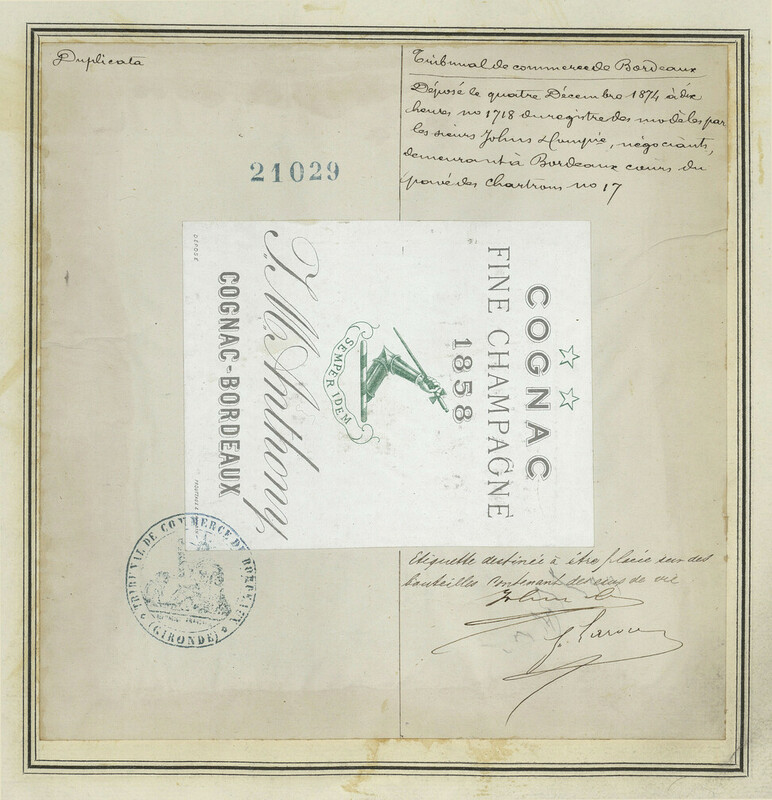 Duplicata
Tribunal de commerce de Bordeaux
Déposé le quatre Décembre 1874 à dix
heures no 1718 du registre des modèles par
les sieurs Johns & Compie, négociants,
demeurant à Bordeaux cours du
pavé des Chartrons no 17
21029
COGNAC
FINE CHAMPAGNE
1858
SEMPER IDEM
COGNAC-BORDEAUX
DÉPOSÉ
Etiquette destinée à être placée sur des
bouteilles contenant des eaux de vie
TRIBUNAL DE COMMERCE DE BORDEAUX
(GIRONDE)